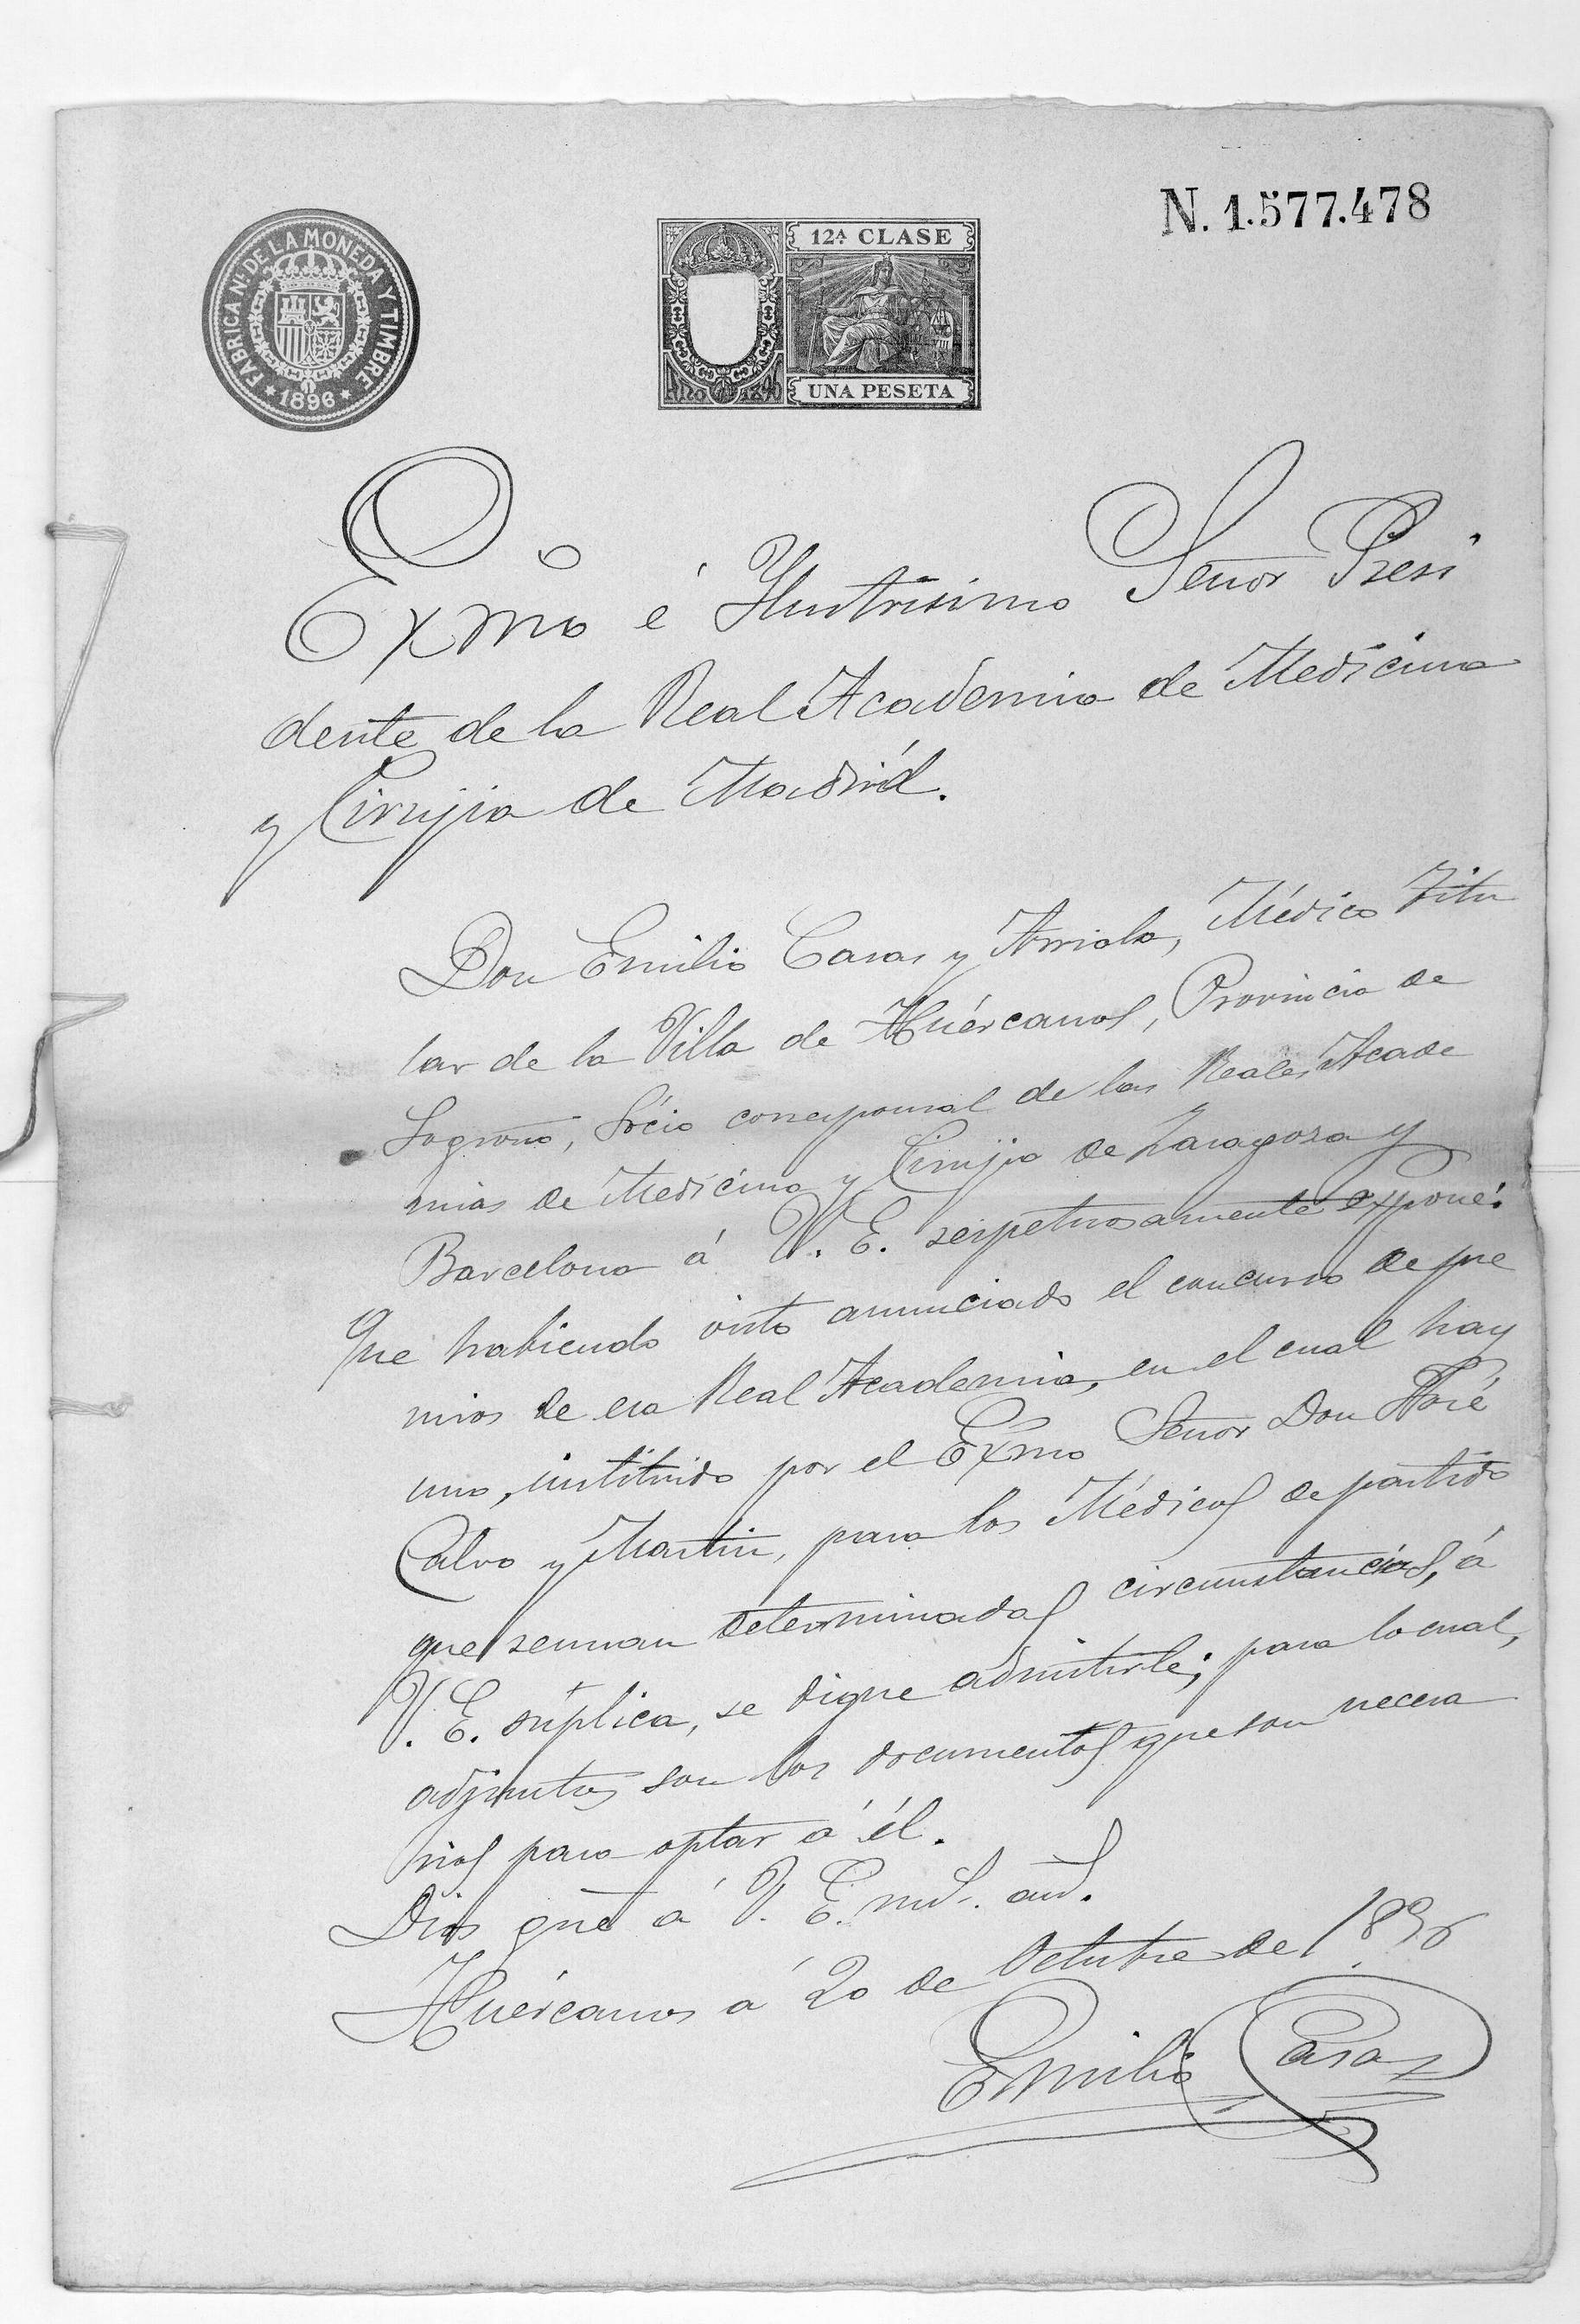 N. 1.577.478
FABRICA NL. DE LA MONEDA Y TIMBRE
* 1896 *
12ª CLASE
Año 1896
UNA PESETA
Exmo é Ylustrisimo Señor Presi
dente de la Real Academia de Medicina
y Cirujia de Madrid.
Don Emilio Casas y Arriola, Médico Titu
lar de la Villa de Huércanos, Provincia de
Logroño, Sócio corresponsal de las Reales Acade
mias de Medicina y Cirujia de Zaragoza y
Barcelona á V. E. respetuosamente expone:
Que habiendo visto anunciado el concurso de pre
mios de esa Real Academia, en el cual hay
uno, instituido por el Exmo Señor Don José
Calvo y Martin, para los Médicos de partido
que reunan determinadas circunstancias, á
V. E. súplica, se digne admitirle; para lo cual,
adjuntos son los documentos que son necesa
rios para optar á él.
Dios gue á V. E. ms. as.
Huércanos á 20 de Octubre de 1896
Emilio Casas